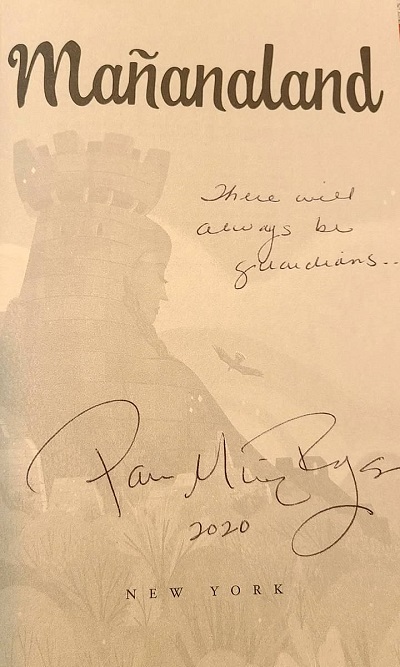 Mañanaland
There will
always be
guardians...
Pam Muñoz Ryan
2020
NEW YORK